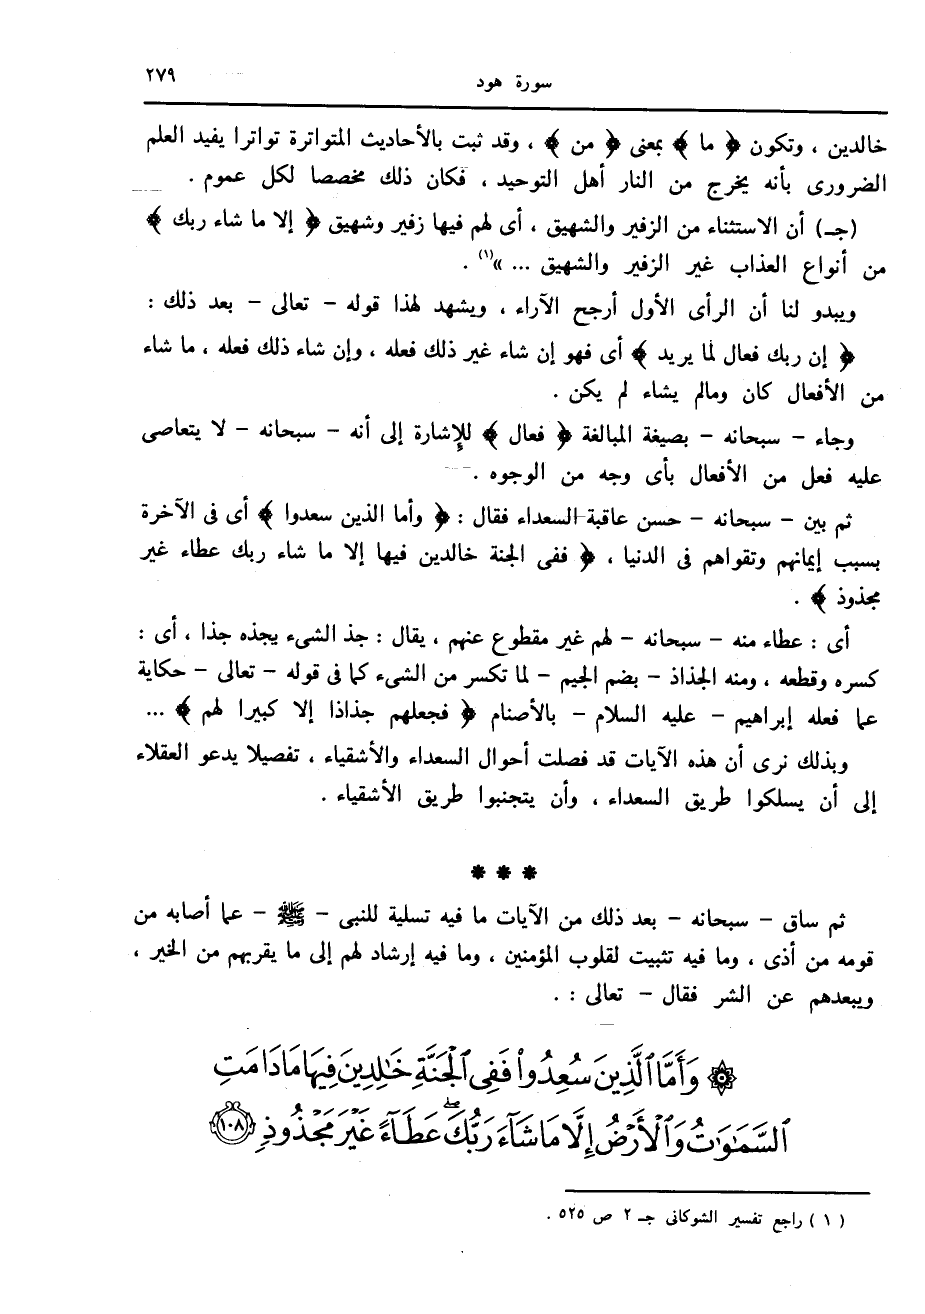 سورة هود
٢٧٩
خالدين ، وتكون ﴿ ما ﴾ بمعنى ﴿ من ﴾ ، وقد ثبت بالأحاديث المتواترة تواترا يفيد العلم
الضرورى بأنه يخرج من النار أهل التوحيد ، فكان ذلك مخصصا لكل عموم .
(جـ) أن الاستثناء من الزفير والشهيق ، أى لهم فيها زفير وشهيق ﴿ إلا ما شاء ربك ﴾
من أنواع العذاب غير الزفير والشهيق ... »(١) .
ويبدو لنا أن الرأى الأول أرجح الآراء ، ويشهد لهذا قوله – تعالى – بعد ذلك :
﴿ إن ربك فعال لما يريد ﴾ أى فهو إن شاء غير ذلك فعله ، وإن شاء ذلك فعله ، ما شاء
من الأفعال كان ومالم يشاء لم يكن .
وجاء – سبحانه – بصيغة المبالغة ﴿ فعال ﴾ للإشارة إلى أنه – سبحانه – لا يتعاصى
عليه فعل من الأفعال بأى وجه من الوجوه .
ثم بين – سبحانه – حسن عاقبة السعداء فقال : ﴿ وأما الذين سعدوا ﴾ أى فى الآخرة
بسبب إيمانهم وتقواهم فى الدنيا ، ﴿ ففى الجنة خالدين فيها إلا ما شاء ربك عطاء غير
مجذوذ ﴾ .
أى : عطاء منه – سبحانه – لهم غير مقطوع عنهم ، يقال : جذ الشىء يجذه جذا ، أى :
كسره وقطعه ، ومنه الجذاذ – بضم الجيم – لما تكسر من الشىء كما فى قوله – تعالى – حكاية
عما فعله إبراهيم – عليه السلام – بالأصنام ﴿ فجعلهم جذاذا إلا كبيرا لهم ﴾ ...
وبذلك نرى أن هذه الآيات قد فصلت أحوال السعداء والأشقياء ، تفصيلا يدعو العقلاء
إلى أن يسلكوا طريق السعداء ، وأن يتجنبوا طريق الأشقياء .
* * *
ثم ساق – سبحانه – بعد ذلك من الآيات ما فيه تسلية للنبى – ﷺ – عما أصابه من
قومه من أذى ، وما فيه تثبيت لقلوب المؤمنين ، وما فيه إرشاد لهم إلى ما يقربهم من الخير ،
ويبعدهم عن الشر فقال – تعالى : .
۞ وَأَمَّا ٱلَّذِينَ سُعِدُوا۟ فَفِى ٱلْجَنَّةِ خَٰلِدِينَ فِيهَا مَا دَامَتِ
ٱلسَّمَٰوَٰتُ وَٱلْأَرْضُ إِلَّا مَا شَآءَ رَبُّكَ ۖ عَطَآءً غَيْرَ مَجْذُوذٍ ١٠٨
( ١ ) راجع تفسير الشوكانى جـ ٢ ص ٥٢٥ .